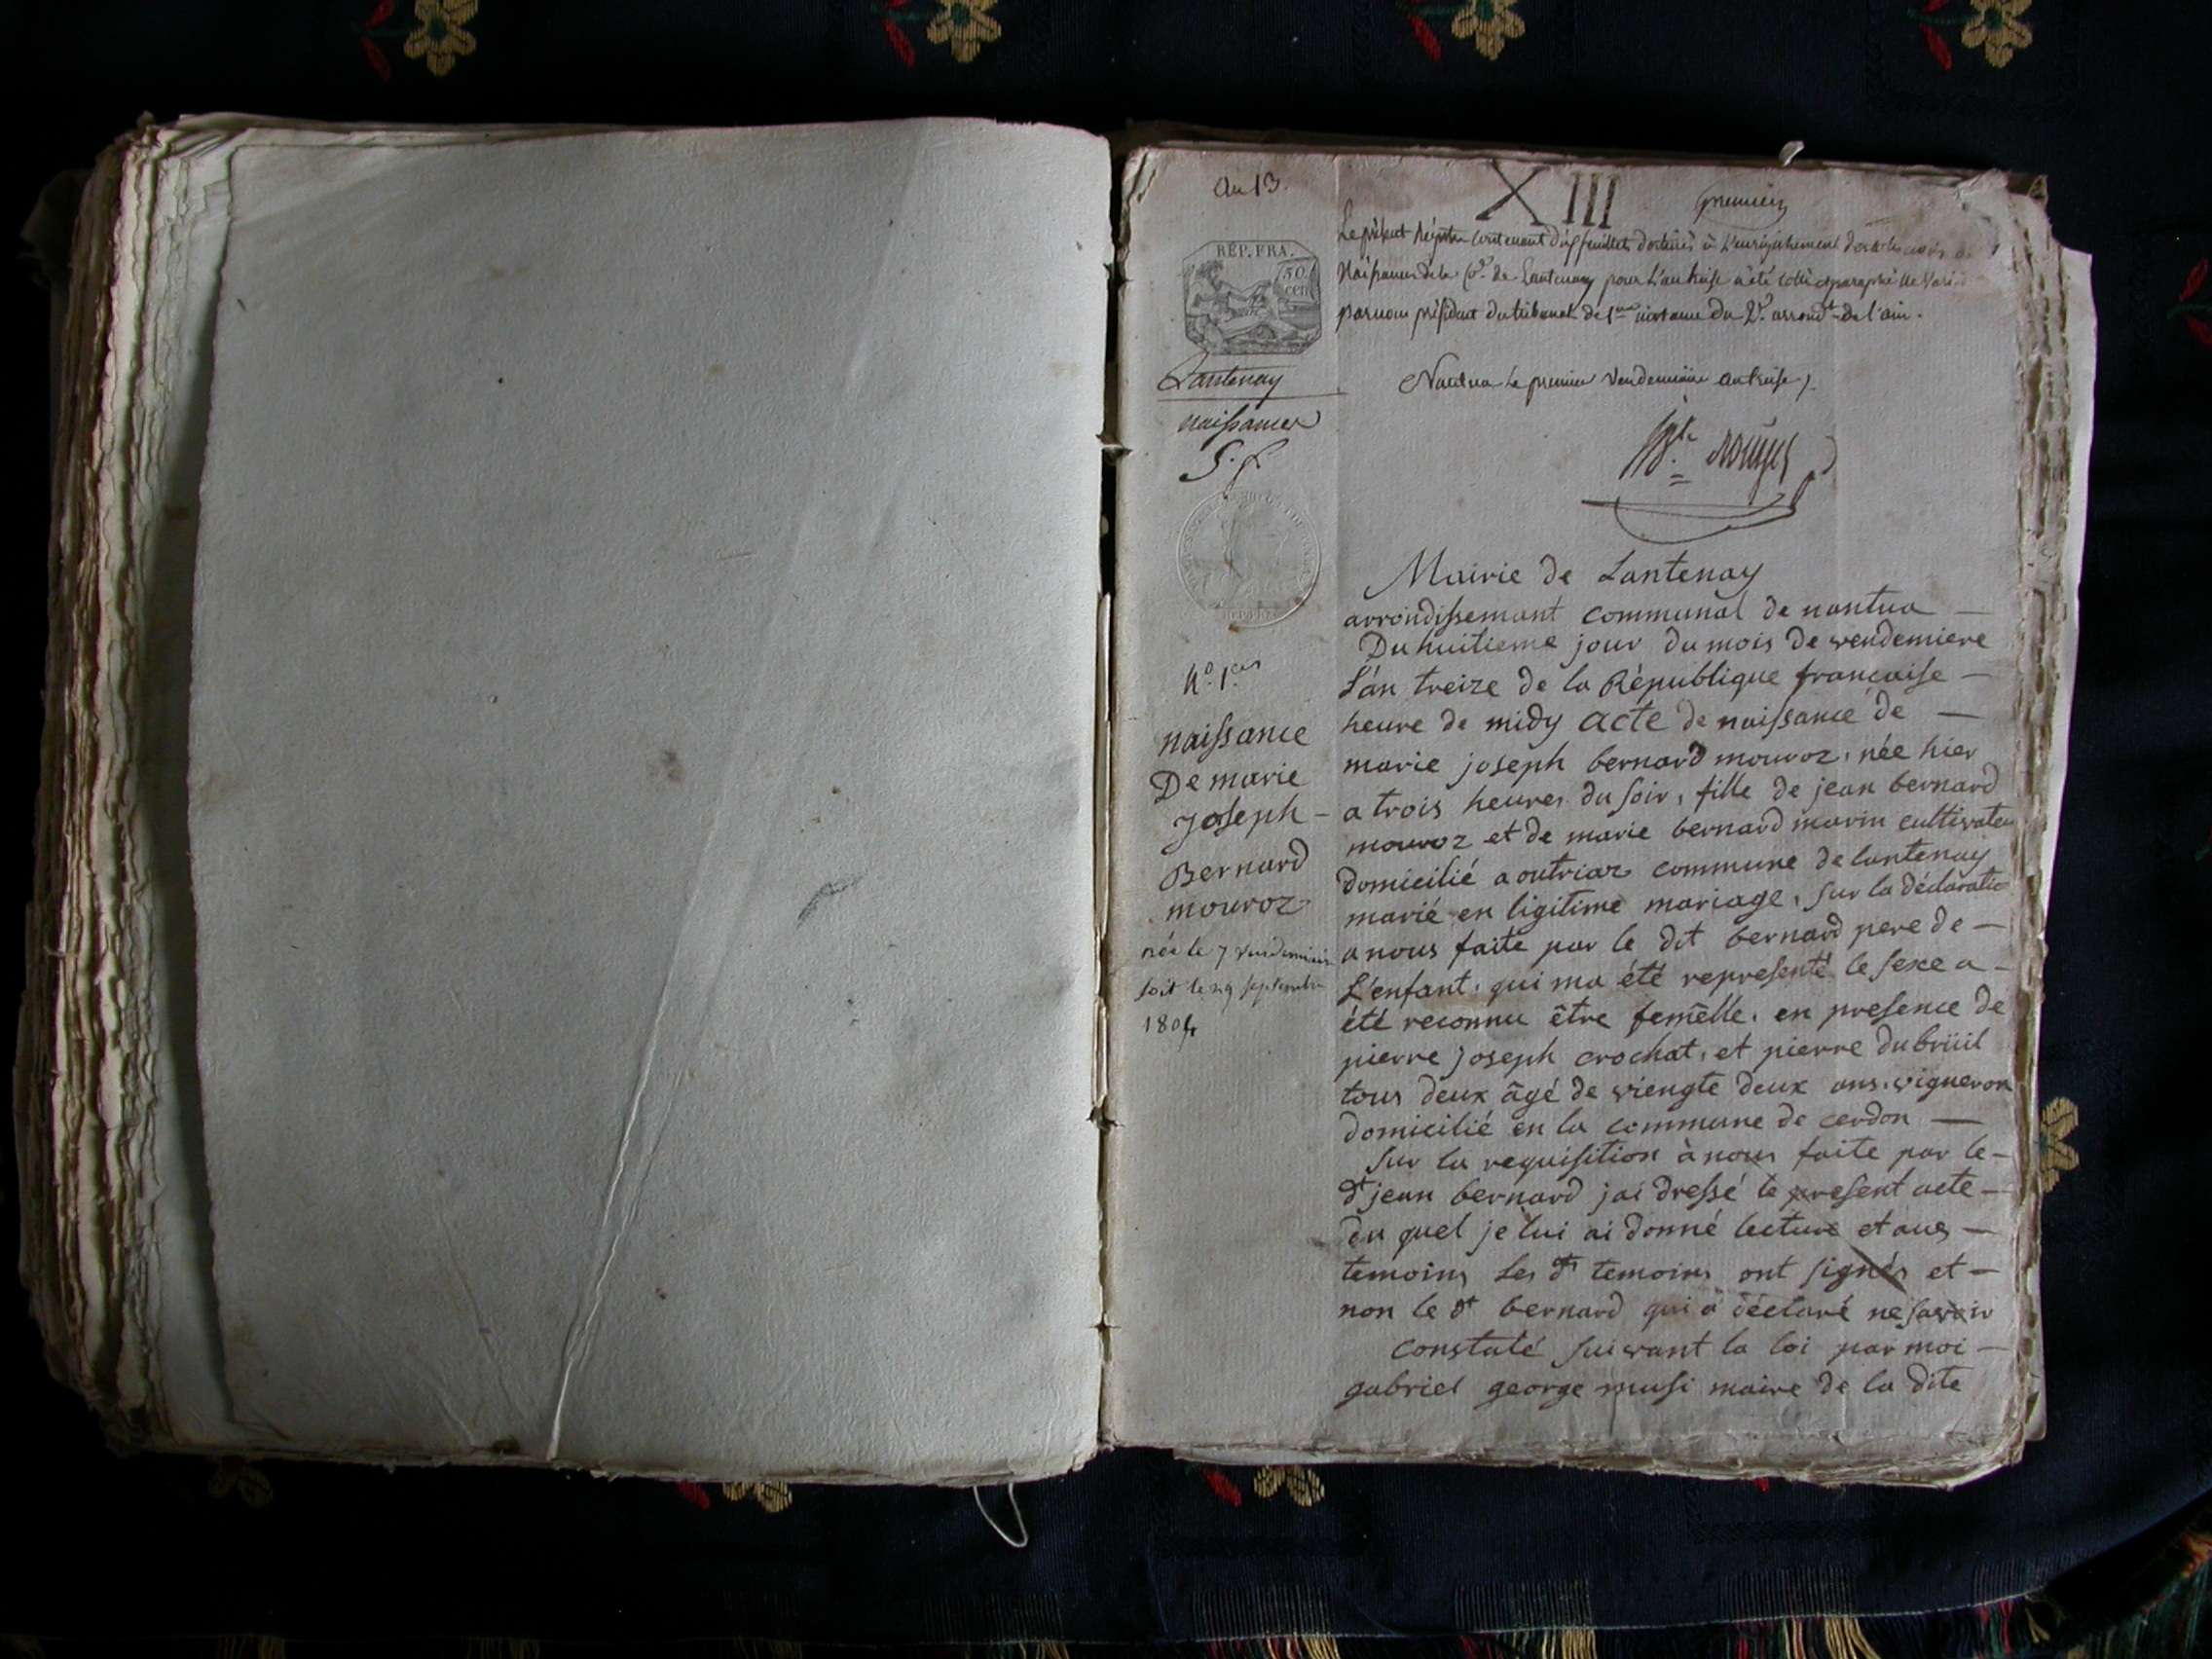 an 13.
XIII
premier
Le présent Régistre contenant dix feuillets destinés à L'enregistrement des actes de
Naissances de la Co.ne de Lantenay pour L'an treize a été cotté et paraphé
par nous président du tribunal de 1ere instance du 2e. arrond.t de l'ain.
Nantua Le premier Vendemiaire an treize
RÉP. FRA.
50
cen
Lantenay
naissances
Mairie de Lantenay
arrondissemant communal de nantua —
Du huitieme jour du mois de vendemiere
L'an treize de la République francaise —
heure de midy acte de naissance de —
marie joseph bernard mouroz, née hier
a trois heures du soir, fille de jean bernard
mouroz et de marie bernard marin cultivateur
domicilié a outriaz commune de lantenay
marié en ligitime mariage, sur la déclaratio
a nous faite par le dit bernard pere de —
L'enfant, qui ma été representé le sexe a —
été reconnu être femêlle, en presence de
pierre joseph crochat, et pierre dubrüil
tous deux âgé de viengte deux ans, vigneron
domicilié en la commune de cerdon —
sur la requisition à nous faite par le —
dt jean bernard jai dressé le present acte —
du quel je lui ai donné lecture et aux —
temoins Les dts temoins ont signés et —
non le dt bernard qui a déclaré ne savoir
constaté suivant la loi par moi —
gabriel george musi maire de la dite
N.o 1.er
naissance
De marie
Joseph —
Bernard
mouroz
née le 7 vendemiaire
soit le 29 septembre
1804